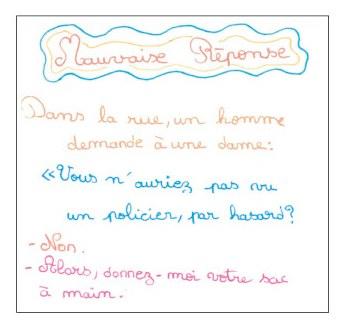 Mauvaise Réponse
Dans la rue, un homme
demande à une dame:
«Vous n'auriez pas vu
un policier, par hasard?
- Non.
- Alors, donnez-moi votre sac
à main.